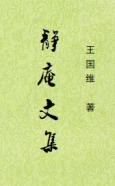 静庵文集
王国维 著